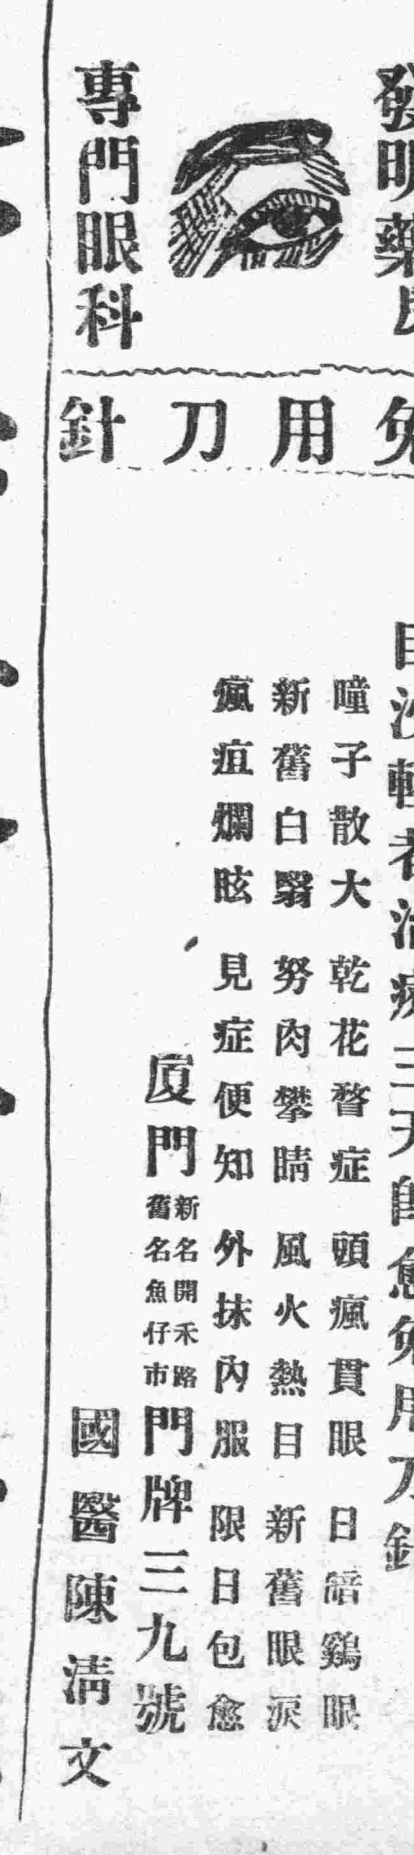 發明藥房
專門眼科
免用刀針
者治療三天卽愈免用刀針
瞳子散大 乾花瞀症 頭瘋貫眼 日暗鷄眼
新舊白翳 努肉攀睛 風火熱目 新舊眼淚
瘋疽爛眩 見症便知 外抹內服 限日包愈
厦門 新名開禾路 舊名魚仔市 門牌三九號
國醫陳淸文